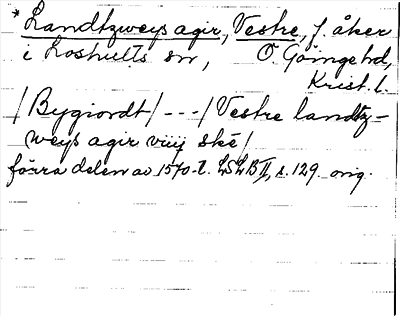 * Landtzweys agir, Vestre, f. åker
i Loshults sn, Ö. Göinge hd,
Krist. l.
/Bygiordt/ - - - / Vestre landtz-
weys agir viiij ske/
förra delen av 1570-t. LSLB II, s. 129. orig.